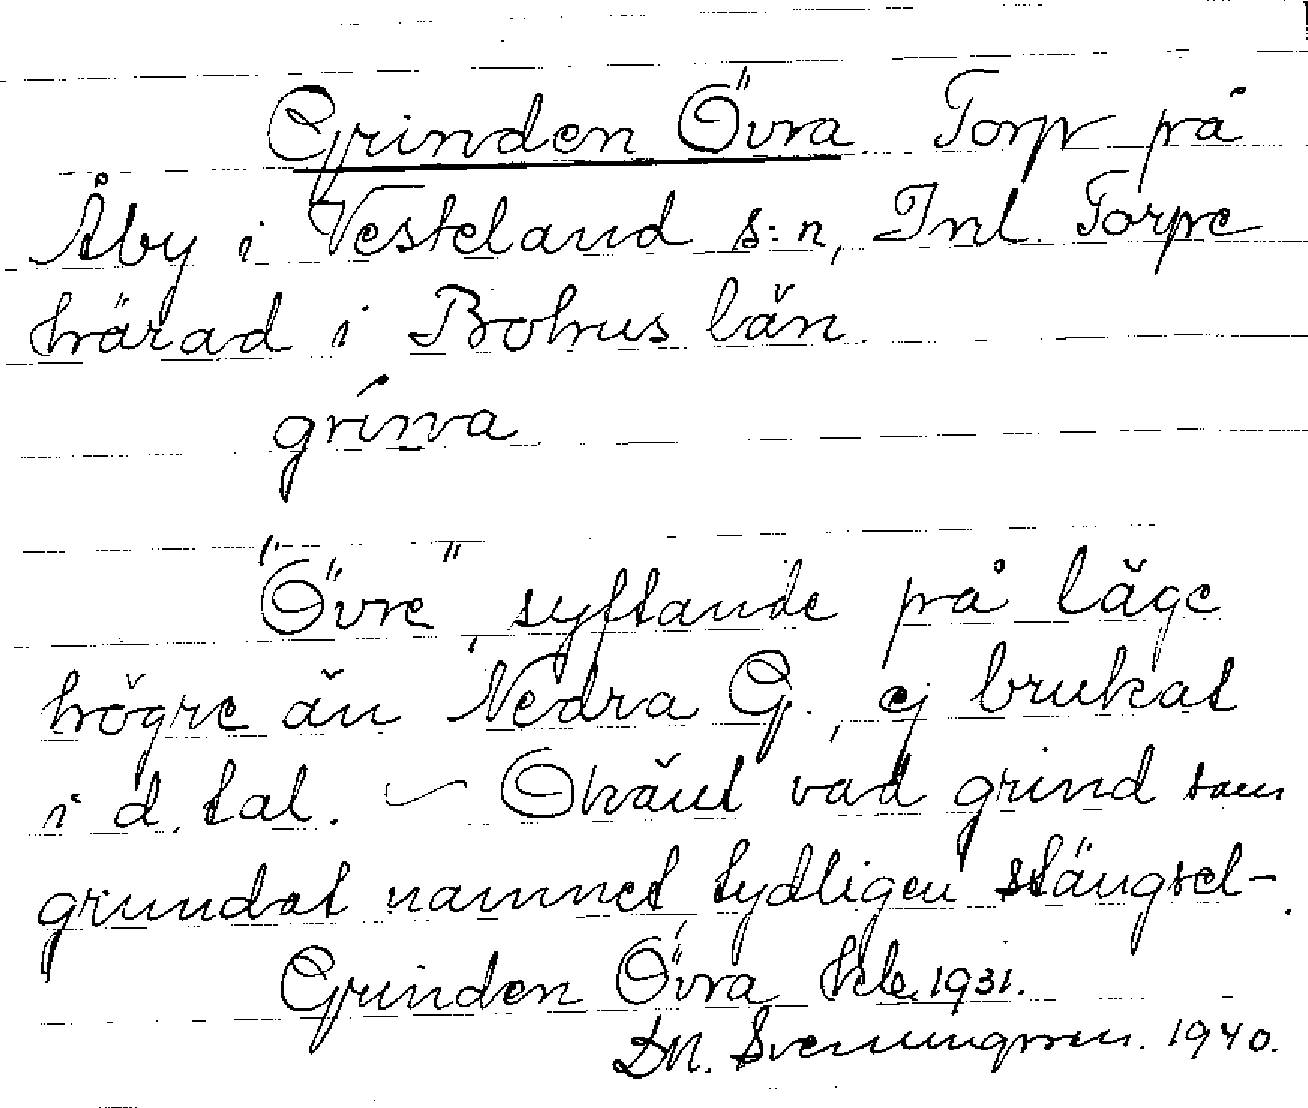 Grinden Övra Torp på
Åby i Vesteland s:n, Inl. Torpe
härad i Bohus län
grínna
"Övre", syftande på läge
högre än Nedra G., ej brukat
i d. tal. – Okänt vad grind som
grundat namnet, tydligen stängsel-.
Grinden Övra Hcle 1931.
D.N. Svenningsson. 1940.